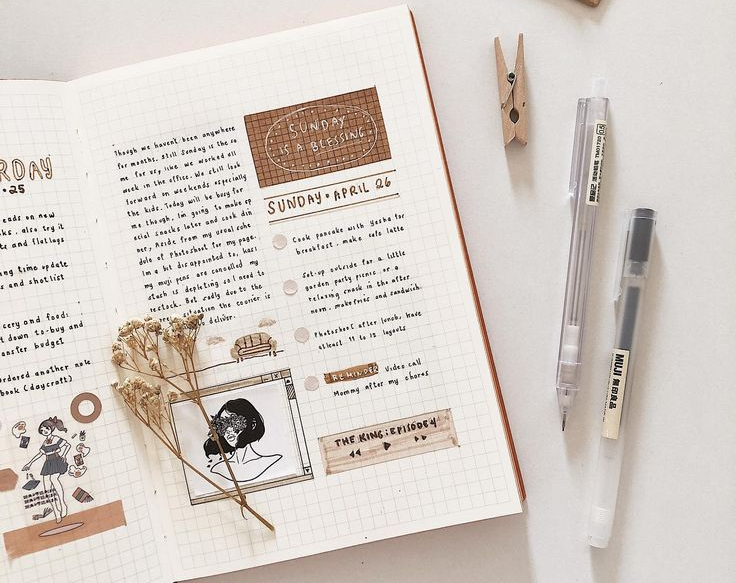 RDAY
•25
eads on new
ks. also try it
ts and flatlags
ng time update
s and shotlist
cery and food.
t down to-buy and
ansfer budget
ordered another note
book (daycraft)
Though we haven't been anywhere
for months. Still Sunday is the so
me for us, like we worked all
week in the office. We still look
forward on weekends especially
the kids. Today will be busy for
me though. Im going to make sp
ecial snacks later and cook din
ner. Aside from my usual sche
dule of Photoshoot for my page.
Im a bit disappointed to,
my muji pens are cancelled my
stash is depleting so I need to
restock. But sadly due to the
situation the courier is
deliver.
SUNDAY
IS A BLESSING
SUNDAY • APRIL 26
Cook pancake with Yesha for
breakfast. make cafe latte
Set-up outside for a little
garden party, picnic, or a
relaxing snack in the after
noon. make and sandwich.
Photoshoot after lunch, have
atleast 11 to 12 layouts
REMINDER Video call
Mommy after my chores
THE KING : EPISODE 4
MUJI
無印良品